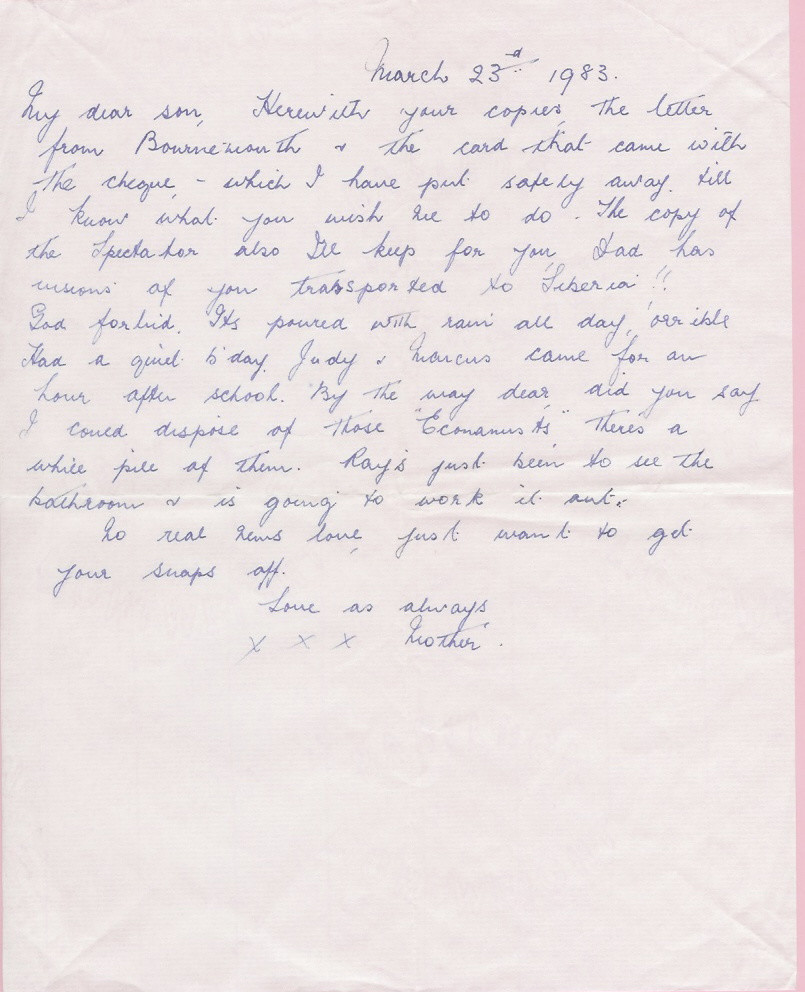 March 23rd 1983.
My dear son, Herewith your copies, the letter
from Bournemouth & the card that came with
the cheque, - which I have put safely away, till
I know what you wish me to do. The copy of
the Spectator also I'll keep for you, Dad has
visions of you transported to 'Siberia'!!
God forbid. Its poured with rain all day, 'orrible
Had a quiet b'day. Judy & Marcus came for an
hour after school. By the way dear, did you say
I could dispose of those "Economists" there's a
while pile of them. Ray's just been to see the
bathroom & is going to work it out.
No real news love, just want to get
your snaps off.
Love as always
x x x Mother.